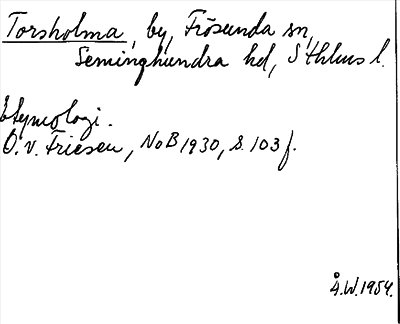 Torsholma, by, Frösunda sn,
Seminghundra hd, Sthlms l.
Etymologi.
O. v. Friesen, NoB 1930, s. 103 f.
Å.W. 1954.